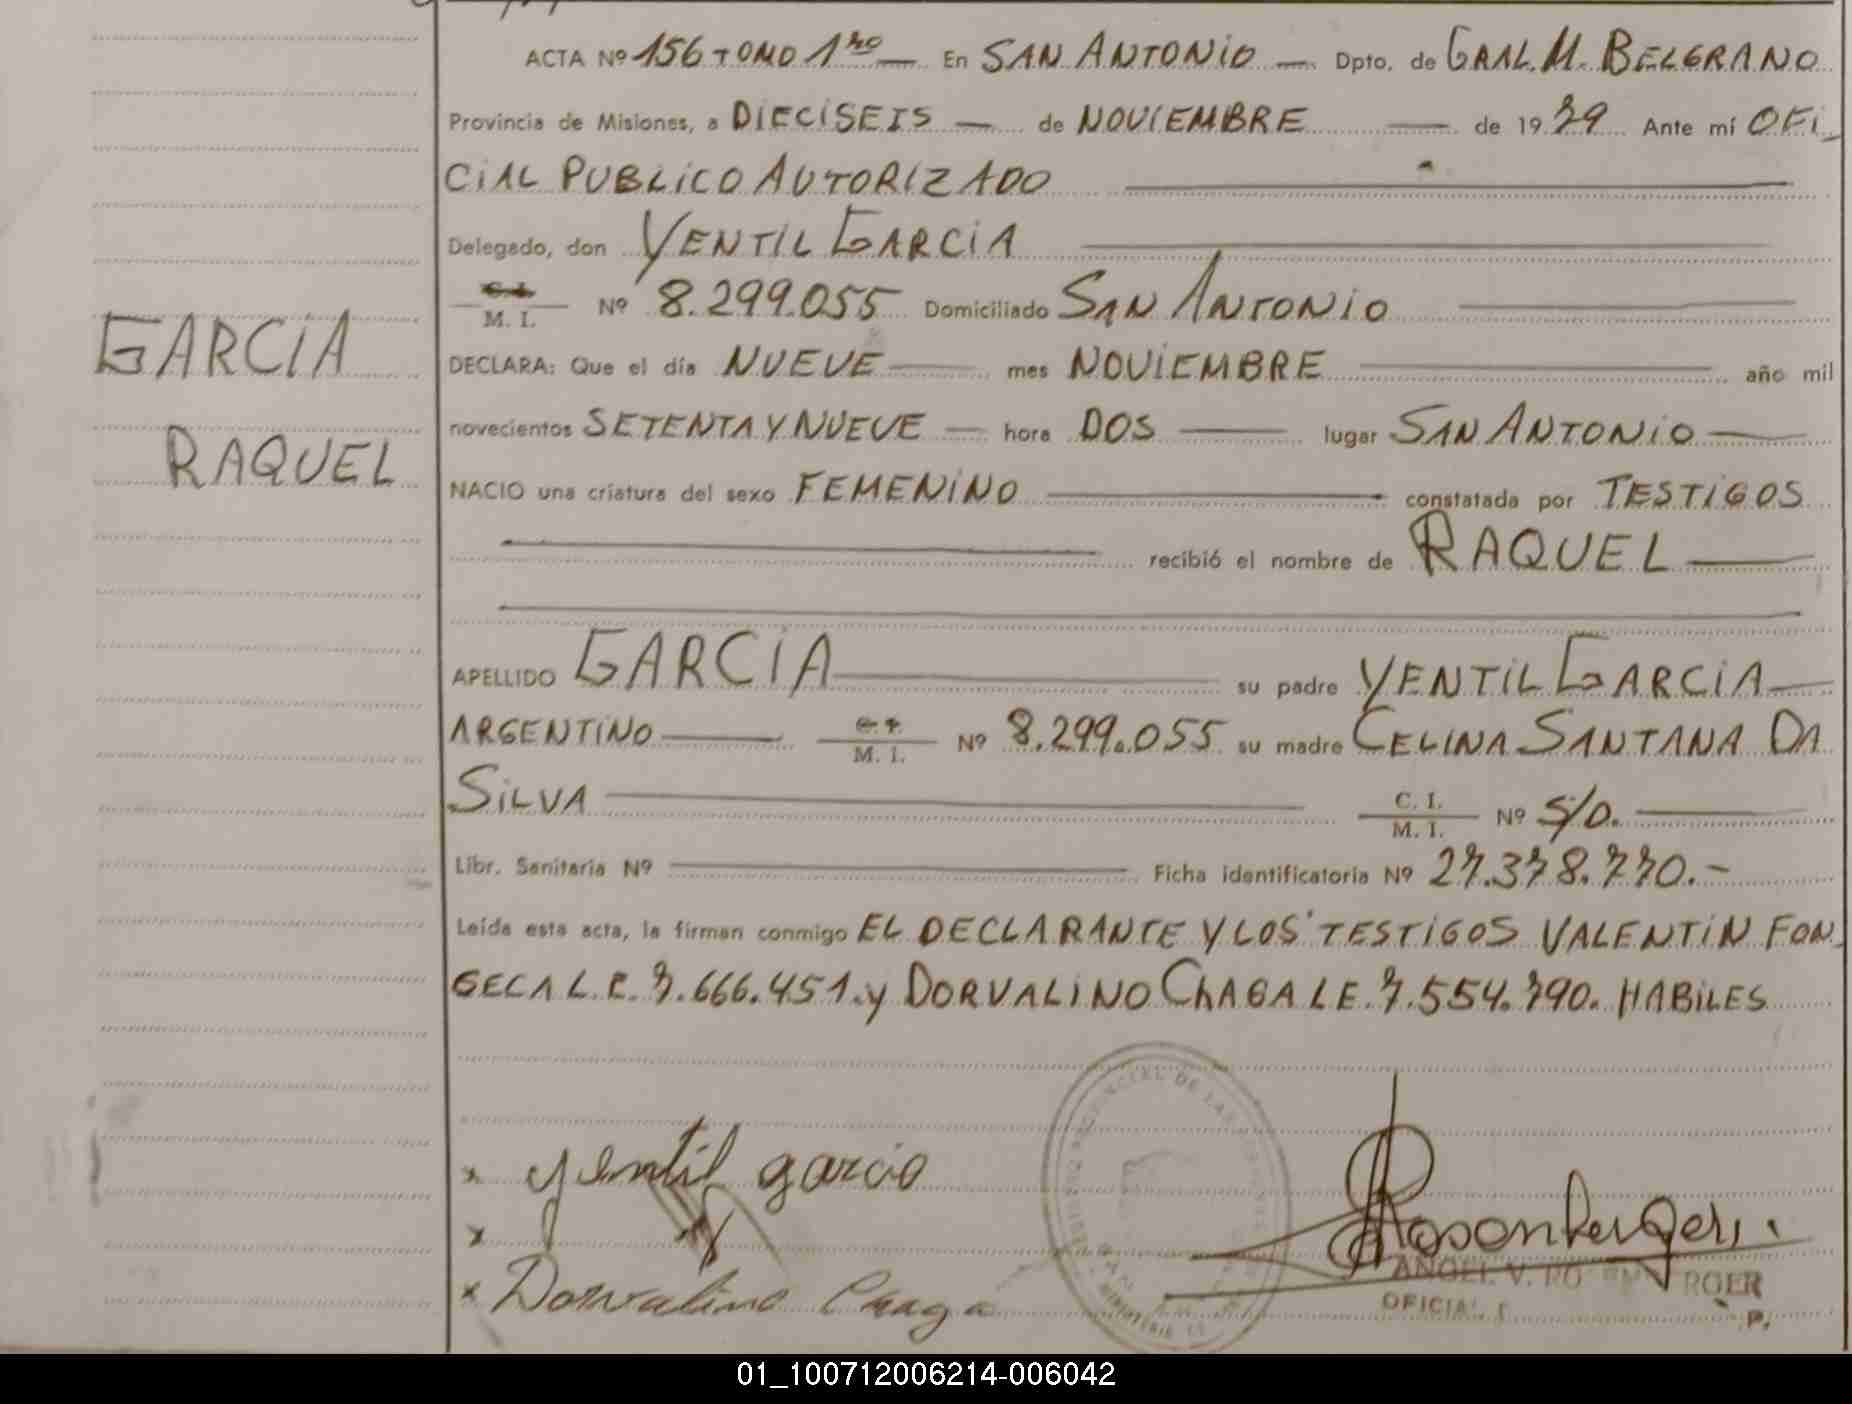 ACTA Nº 156 TOMO 1ro — En SAN ANTONIO — Dpto. de GRAL. M. BELGRANO
Provincia de Misiones, a DIECISEIS — de NOVIEMBRE — de 1979 Ante mí OFI
CIAL PUBLICO AUTORIZADO
Delegado, don YENTIL GARCIA
C. I. / M. I. Nº 8.299.055 Domiciliado SAN ANTONIO
DECLARA: Que el día NUEVE — mes NOVIEMBRE — año mil
novecientos SETENTA Y NUEVE — hora DOS — lugar SAN ANTONIO —
NACIO una criatura del sexo FEMENINO — constatada por TESTIGOS
recibió el nombre de RAQUEL —
APELLIDO GARCIA — su padre YENTIL GARCIA —
ARGENTINO — C. I. / M. I. Nº 8.299.055 su madre CELINA SANTANA DA
SILVA — C. I. / M. I. Nº S/D. —
Libr. Sanitaria Nº — Ficha identificatoria Nº 27.378.770.-
Leída esta acta, la firman conmigo EL DECLARANTE Y LOS TESTIGOS VALENTIN FON
SECA L.E. 7.666.451. y DORVALINO CHAGA L E. 7.554.790. HABILES
GARCIA
RAQUEL
x yentil garcia
x
x Dorvalino Chaga
Rosenberger
ANGEL V. RO RGER
OFICIAL P.
01_100712006214-006042